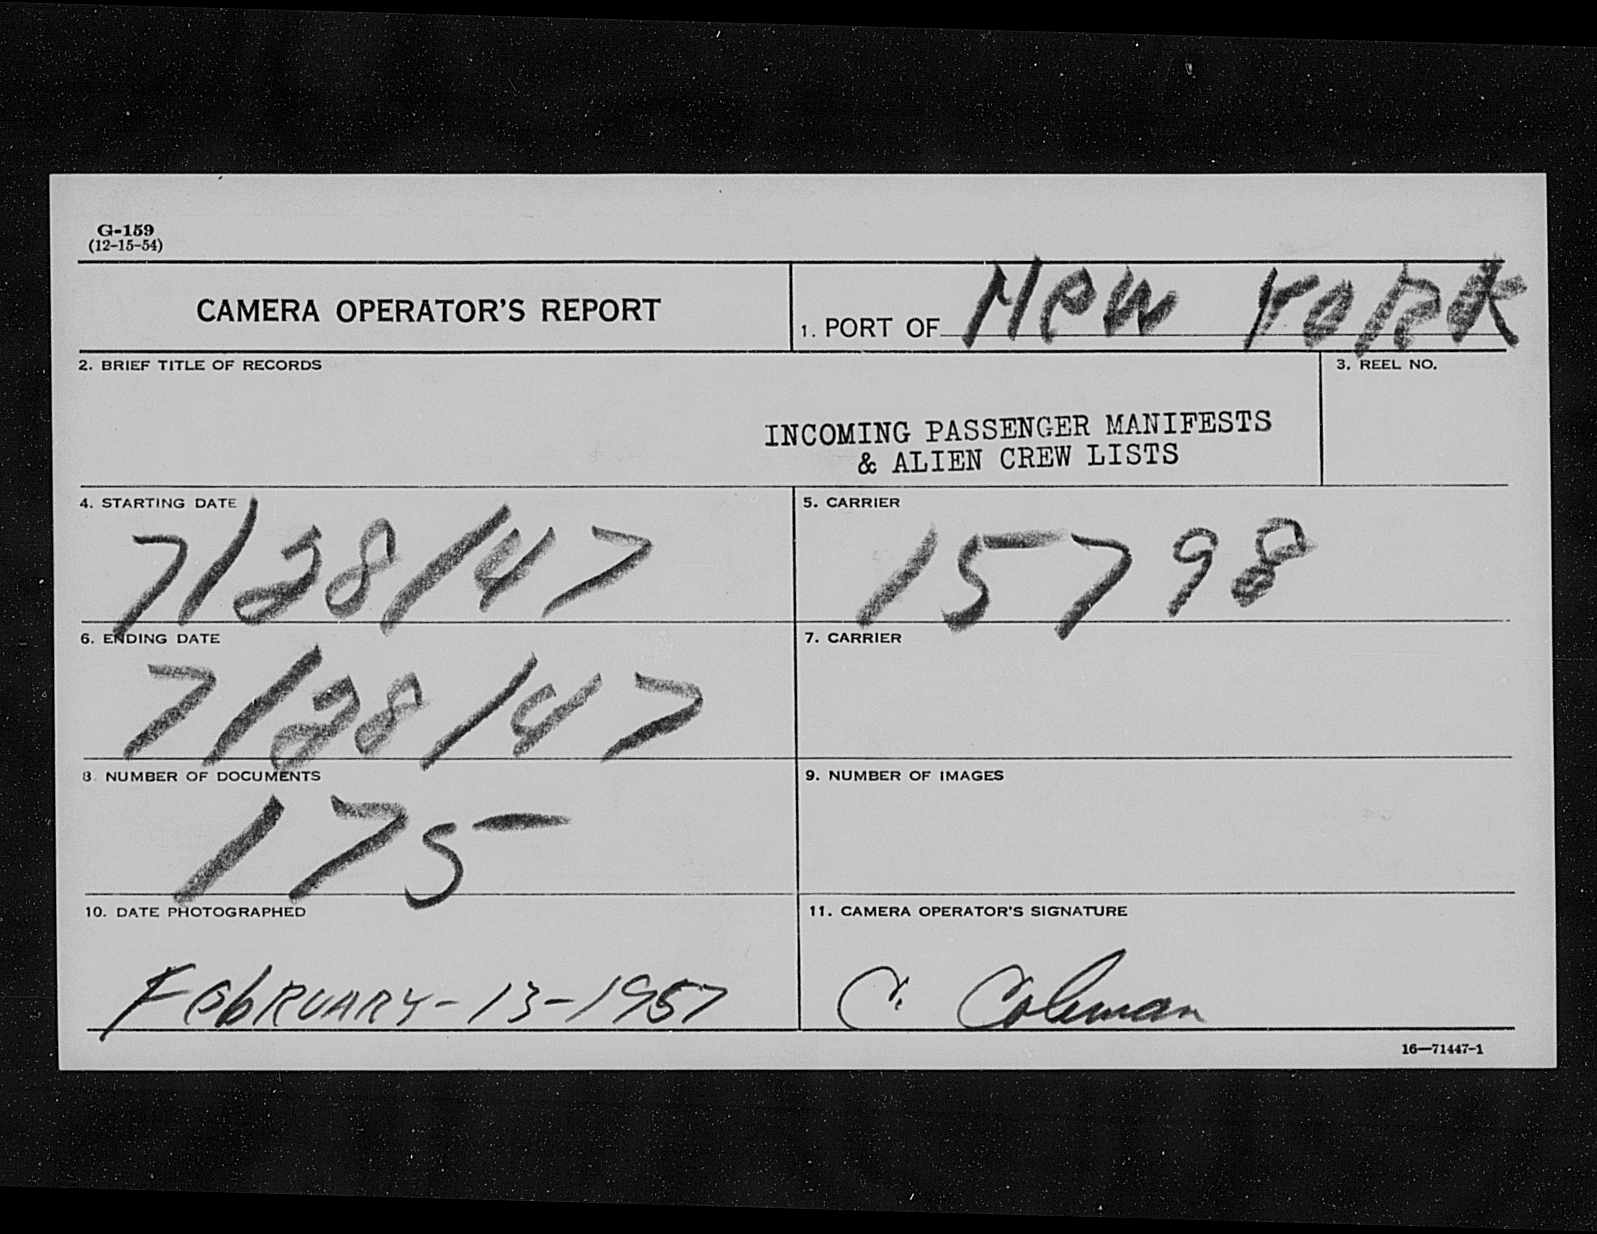 G-159
(12-15-54)
CAMERA OPERATOR'S REPORT
1. PORT OF New YORK
2. BRIEF TITLE OF RECORDS
3. REEL NO.
INCOMING PASSENGER MANIFESTS
& ALIEN CREW LISTS
4. STARTING DATE
7/28/47
5. CARRIER
15798
6. ENDING DATE
7/28/47
7. CARRIER
8. NUMBER OF DOCUMENTS
175
9. NUMBER OF IMAGES
10. DATE PHOTOGRAPHED
FebRUARY-13-1957
11. CAMERA OPERATOR'S SIGNATURE
C. Coleman
16—71447-1